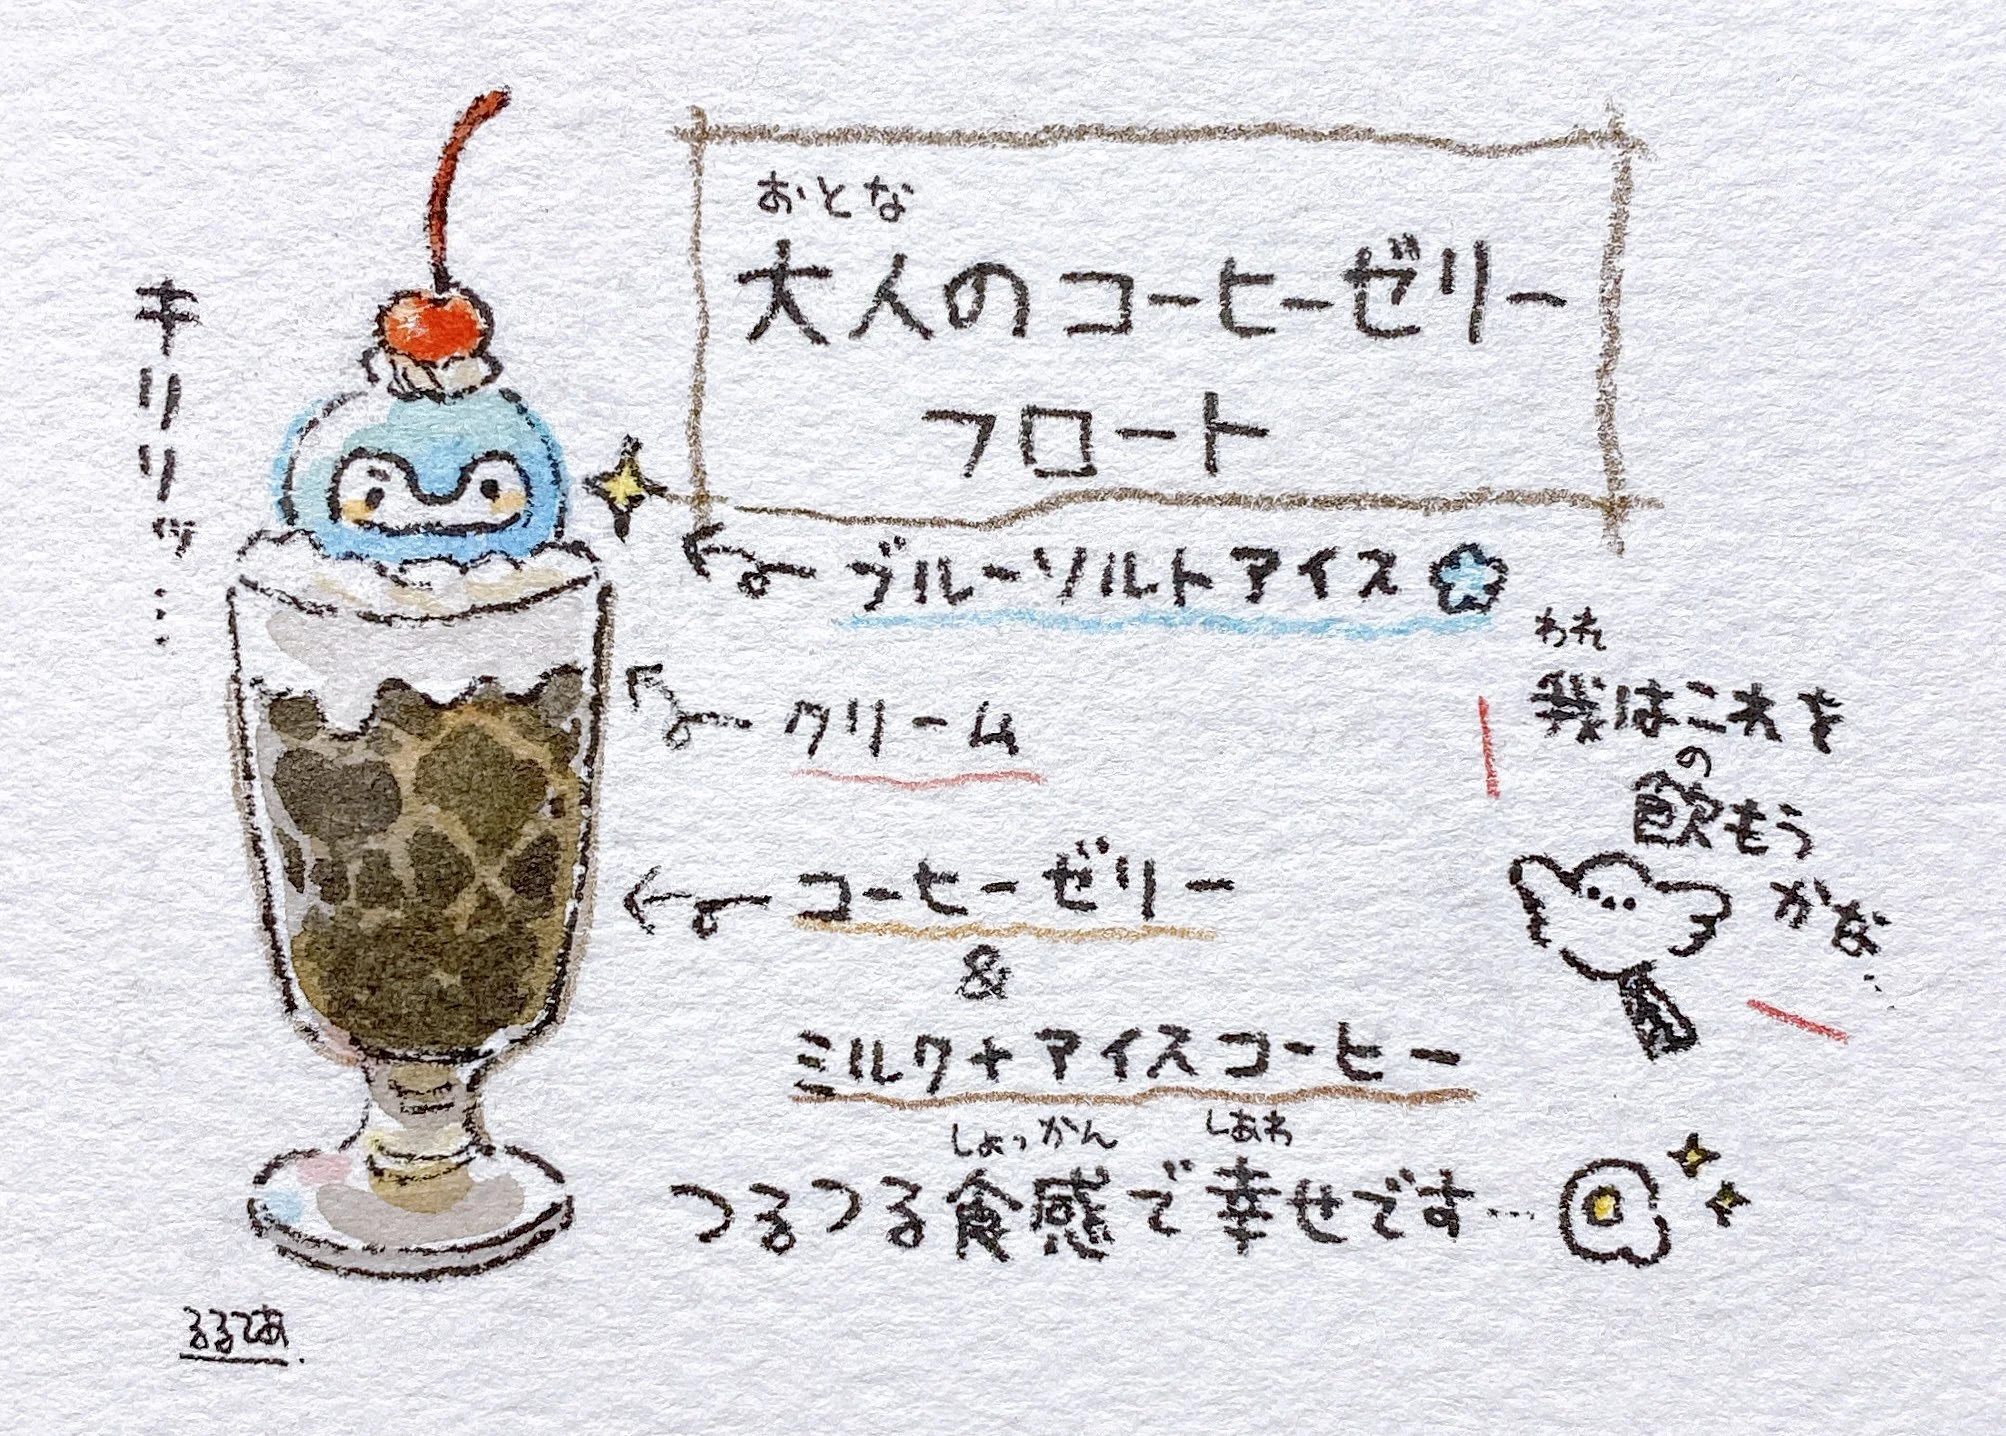 おとな
大人のコーヒーゼリー
フロート
キリリッ…
ブルーソルトアイス
クリーム
コーヒーゼリー
&
ミルク+アイスコーヒー
しょっかん しあわ
つるつる食感で幸せです…
われ
我はこれを
の
飲もう
かな…
るるてあ